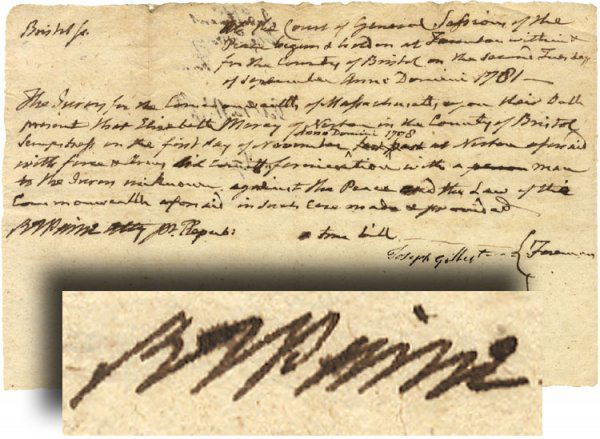 Bristol ss.
At the Court of General Sessions of the
Peace begun & holden at Taunton within &
for the County of Bristol on the second Tuesday
of September Anno Domini 1781
The Jurors for the Commonwealth of Massachusetts upon their Oath
present that Elizabeth of Norton in the County of Bristol
Anno Domini
on the first day of November at Norton aforesaid
with force & Arms did commit fornication with a man
to the Jurors unknown, against the Peace and the Law of the
Commonwealth aforesaid in such case made & provided
RTPaine Atty pr. Repub:
a true bill
Joseph Foreman
RTPaine